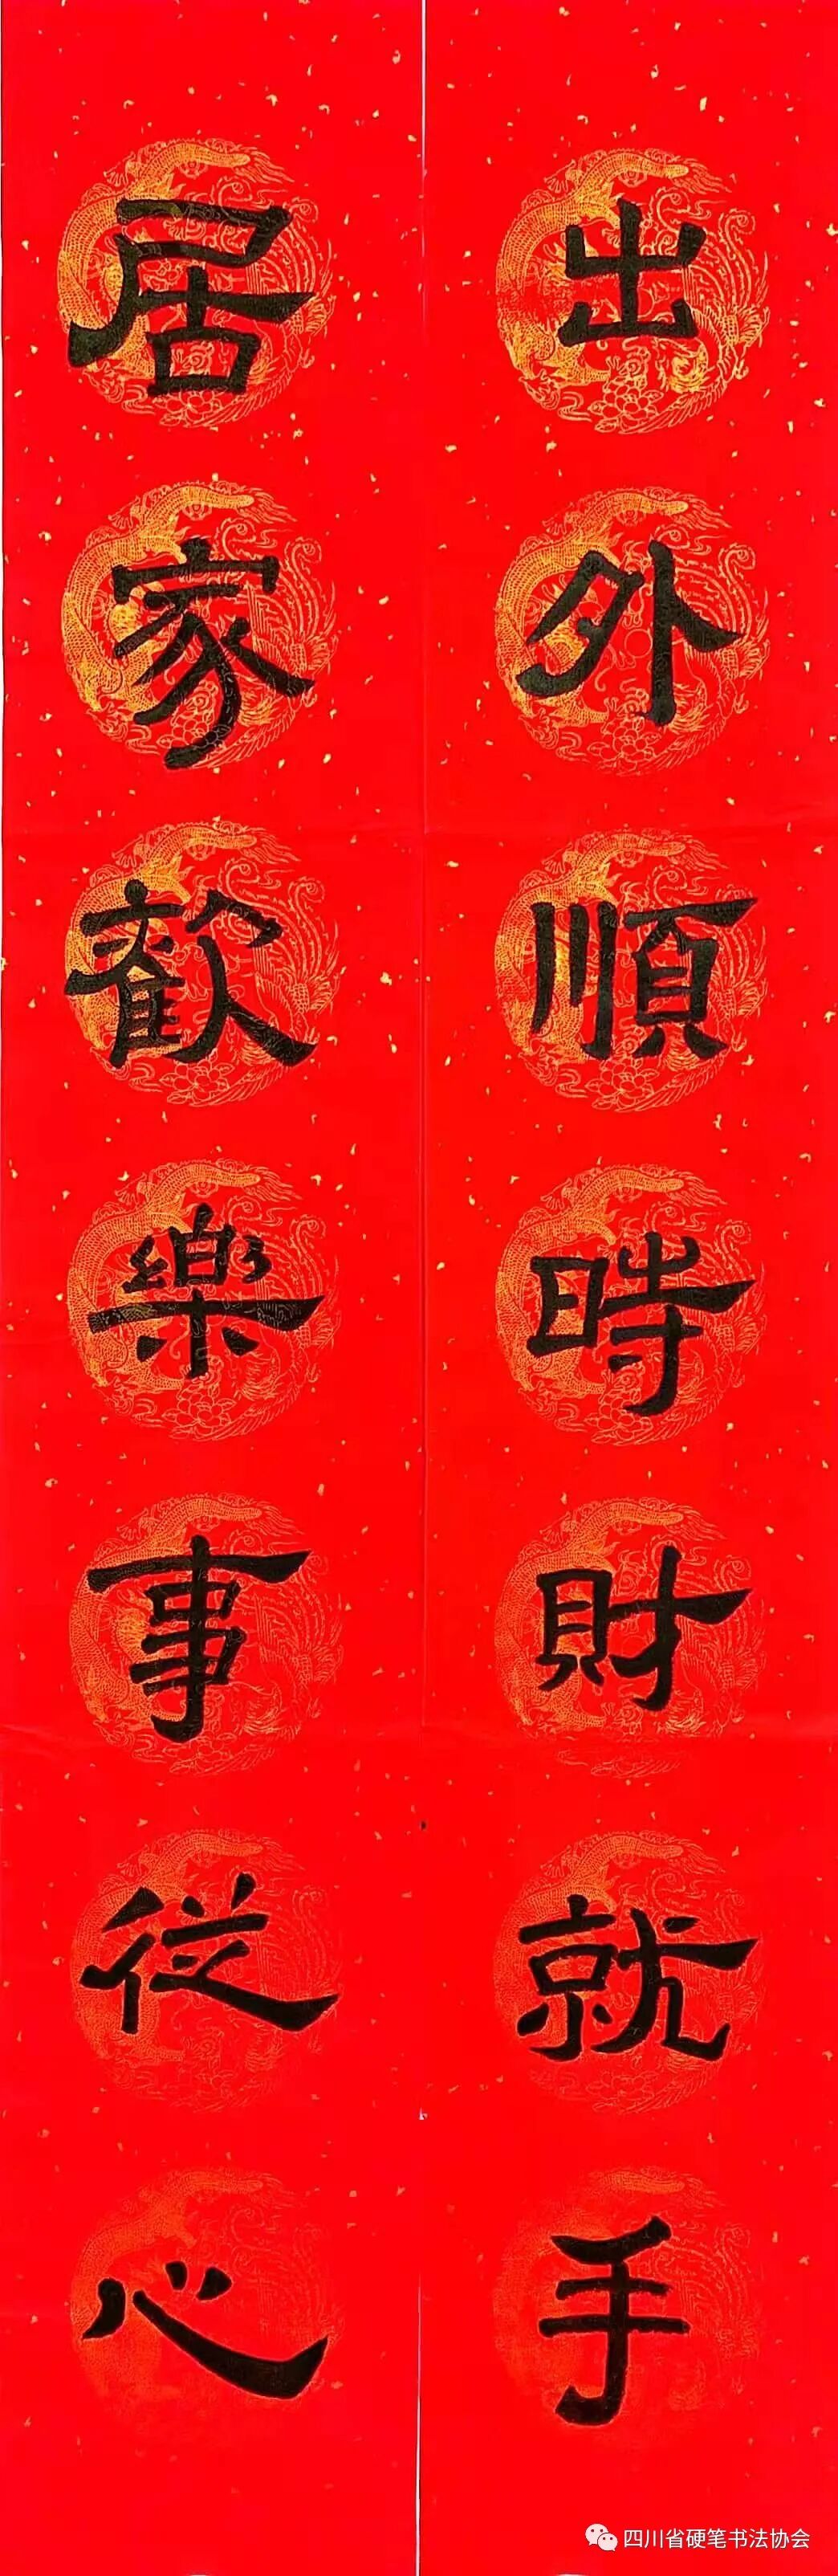 出外順時財就手
居家歡樂事從心
四川省硬笔书法协会